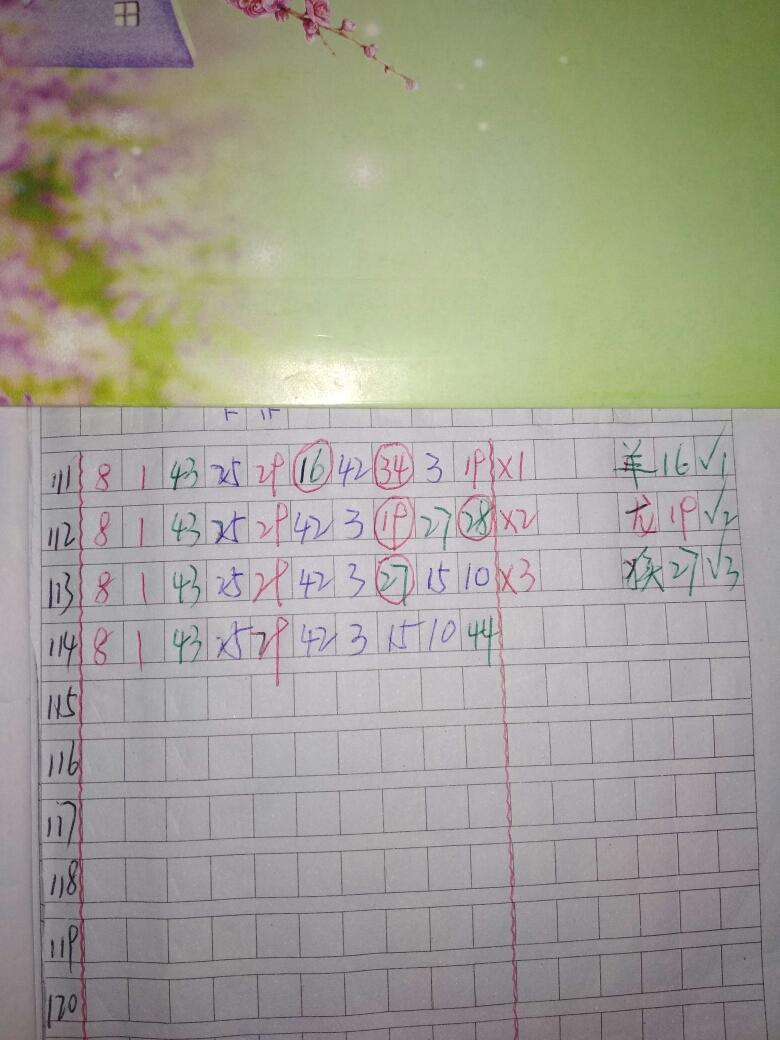 111 8 1 43 25 29 16 42 34 3 19 x1 羊 16 √1
112 8 1 43 25 29 42 3 19 27 28 x2 龙 19 √2
113 8 1 43 25 29 42 3 27 15 10 x3 猴 27 √3
114 8 1 43 25 29 42 3 15 10 44
115
116
117
118
119
120